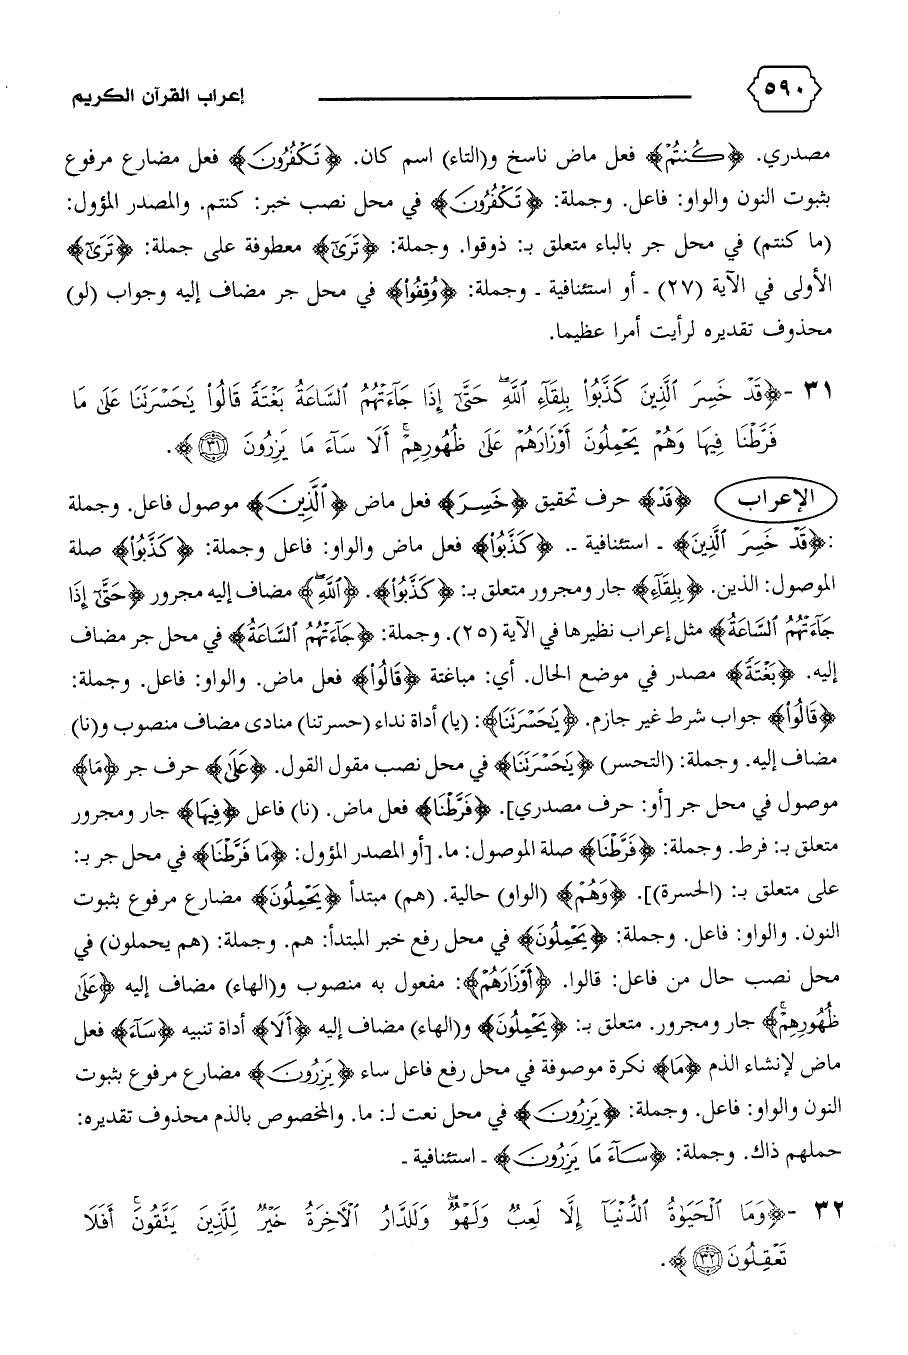 ٥٩٠ إعراب القرآن الكريم
مصدري. ﴿كُنتُمْ﴾ فعل ماض ناسخ و(التاء) اسم كان. ﴿تَكْفُرُونَ﴾ فعل مضارع مرفوع
بثبوت النون والواو: فاعل. وجملة: ﴿تَكْفُرُونَ﴾ في محل نصب خبر: كنتم. والمصدر المؤول:
(ما كنتم) في محل جر بالباء متعلق بـ: ذوقوا. وجملة: ﴿تَرَىٰٓ﴾ معطوفة على جملة: ﴿تَرَىٰٓ﴾
الأولى في الآية (٢٧) ـ أو استئنافية ـ وجملة: ﴿وُقِفُوا۟﴾ في محل جر مضاف إليه وجواب (لو)
محذوف تقديره لرأيت أمرا عظيما.
٣١ -﴿قَدْ خَسِرَ ٱلَّذِينَ كَذَّبُوا۟ بِلِقَآءِ ٱللَّهِ ۖ حَتَّىٰٓ إِذَا جَآءَتْهُمُ ٱلسَّاعَةُ بَغْتَةً قَالُوا۟ يَٰحَسْرَتَنَا عَلَىٰ مَا
فَرَّطْنَا فِيهَا وَهُمْ يَحْمِلُونَ أَوْزَارَهُمْ عَلَىٰ ظُهُورِهِمْ ۚ أَلَا سَآءَ مَا يَزِرُونَ ٣١﴾.
الإعراب ﴿قَدْ﴾ حرف تحقيق ﴿خَسِرَ﴾ فعل ماض ﴿ٱلَّذِينَ﴾ موصول فاعل. وجملة
:﴿قَدْ خَسِرَ ٱلَّذِينَ﴾ ـ استئنافية ـ. ﴿كَذَّبُوا۟﴾ فعل ماض والواو: فاعل وجملة: ﴿كَذَّبُوا۟﴾ صلة
الموصول: الذين. ﴿بِلِقَآءِ﴾ جار ومجرور متعلق بـ: ﴿كَذَّبُوا۟﴾. ﴿ٱللَّهِ ۖ﴾ مضاف إليه مجرور ﴿حَتَّىٰٓ إِذَا
جَآءَتْهُمُ ٱلسَّاعَةُ﴾ مثل إعراب نظيرها في الآية (٢٥). وجملة: ﴿جَآءَتْهُمُ ٱلسَّاعَةُ﴾ في محل جر مضاف
إليه. ﴿بَغْتَةً﴾ مصدر في موضع الحال. أي: مباغتة ﴿قَالُوا۟﴾ فعل ماض. والواو: فاعل. وجملة:
﴿قَالُوا۟﴾ جواب شرط غير جازم. ﴿يَٰحَسْرَتَنَا﴾: (يا) أداة نداء (حسرتنا) منادى مضاف منصوب و(نا)
مضاف إليه. وجملة: (التحسر) ﴿يَٰحَسْرَتَنَا﴾ في محل نصب مقول القول. ﴿عَلَىٰ﴾ حرف جر ﴿مَا﴾
موصول في محل جر [أو: حرف مصدري]. ﴿فَرَّطْنَا﴾ فعل ماض. (نا) فاعل ﴿فِيهَا﴾ جار ومجرور
متعلق بـ: فرط. وجملة: ﴿فَرَّطْنَا﴾ صلة الموصول: ما. [أو المصدر المؤول: ﴿مَا فَرَّطْنَا﴾ في محل جر بـ:
على متعلق بـ: (الحسرة)]. ﴿وَهُمْ﴾ (الواو) حالية. (هم) مبتدأ ﴿يَحْمِلُونَ﴾ مضارع مرفوع بثبوت
النون. والواو: فاعل. وجملة: ﴿يَحْمِلُونَ﴾ في محل رفع خبر المبتدأ: هم. وجملة: (هم يحملون) في
محل نصب حال من فاعل: قالوا. ﴿أَوْزَارَهُمْ﴾: مفعول به منصوب و(الهاء) مضاف إليه ﴿عَلَىٰ
ظُهُورِهِمْ ۚ﴾ جار ومجرور. متعلق بـ: ﴿يَحْمِلُونَ﴾ و(الهاء) مضاف إليه ﴿أَلَا﴾ أداة تنبيه ﴿سَآءَ﴾ فعل
ماض لإنشاء الذم ﴿مَا﴾ نكرة موصوفة في محل رفع فاعل ساء ﴿يَزِرُونَ﴾ مضارع مرفوع بثبوت
النون والواو: فاعل. وجملة: ﴿يَزِرُونَ﴾ في محل نعت لـ: ما. والمخصوص بالذم محذوف تقديره:
حملهم ذاك. وجملة: ﴿سَآءَ مَا يَزِرُونَ﴾ ـ استئنافية ـ
٣٢ -﴿وَمَا ٱلْحَيَوٰةُ ٱلدُّنْيَآ إِلَّا لَعِبٌ وَلَهْوٌ ۖ وَلَلدَّارُ ٱلْـَٔاخِرَةُ خَيْرٌ لِّلَّذِينَ يَتَّقُونَ ۚ أَفَلَا
تَعْقِلُونَ ٣٢﴾.